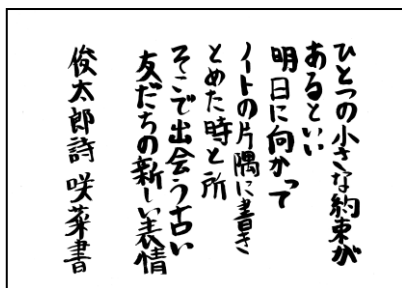 ひとつの小さな約束が
あるといい
明日に向かって
ノートの片隅に書き
とめた時と所
そこで出会う古い
友だちの新しい表情
俊太郎詩 咲菜書